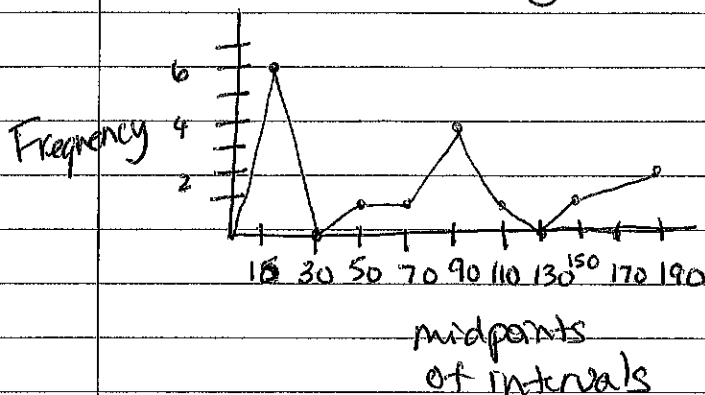 6
Frequency 4
2
10 30 50 70 90 110 130 150 170 190
midpoints
of intervals